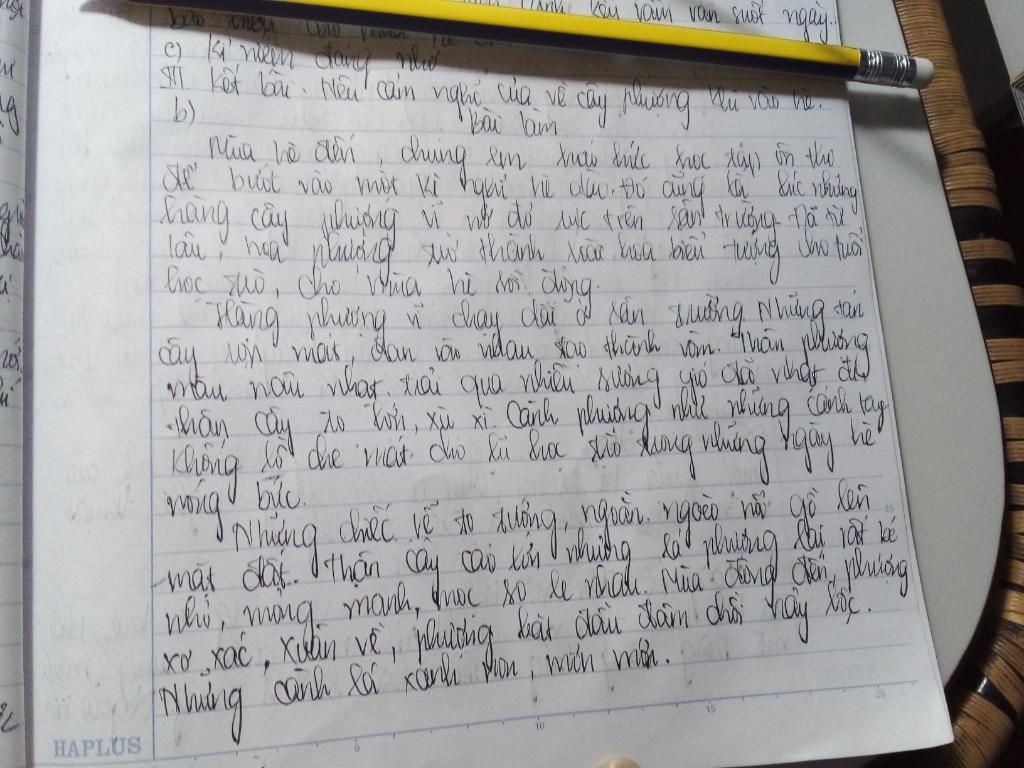 cành kêu râm ran suốt ngày.
c) Kỉ niệm đáng nhớ
III. Kết bài. Nêu cảm nghĩ của về cây phượng khi vào hè.
b) Bài làm
Mùa hè đến, chúng em háo hức học tập ôn thi
để bước vào một kì nghỉ hè dài. Đó cũng là lúc những
hàng cây phượng vĩ nở đỏ rực trên sân trường. Đã từ
lâu, hoa phượng trở thành loài hoa biểu tượng cho tuổi
học trò, cho mùa hè sôi động.
Hàng phượng vĩ chạy dài ở sân trường. Những tán
cây rợp mát đan vào nhau tạo thành vòm. Thân phượng
màu nâu nhạt. trải qua nhiều sương gió đã nhạt đi
thân cây to lớn, xù xì. Cành phượng như những cánh tay
khổng lồ che mát cho lũ học trò trong những ngày hè
nóng bức.
Những chiếc rễ to tướng, ngoằn ngoèo nổi gồ lên
mặt đất. Thân cây cao lớn nhưng lá phượng lại rất bé
nhỏ, mong manh, mọc so le nhau. Mùa đông đến, phượng
xơ xác, xuân về, phượng bắt đầu đâm chồi nảy lộc.
Những cành lá xanh non, mơn mởn.
HAPLUS 5 10 15 20
25